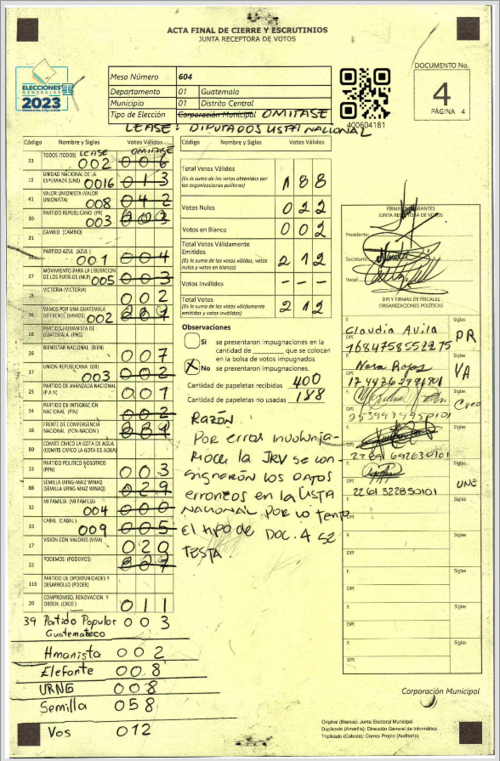 ACTA FINAL DE CIERRE Y ESCRUTINIOS
JUNTA RECEPTORA DE VOTOS
ELECCIONES
GENERALES
2023
Mesa Número 604
Departamento 01 Guatemala
Municipio 01 Distrito Central
Tipo de Elección Corporación Municipal OMITASE
LEASE: DIPUTADOS LISTA NACIONAL
400604181
DOCUMENTO No.
4
PÁGINA 4
Código Nombre y Siglas Votos Válidos
LEASE OMITASE
23 TODOS (TODOS) 002 006
UNIDAD NACIONAL DE LA ESPERANZA (UNE) 0016 013
VALOR UNIONISTA (VALOR UNIONISTA) 008 042
PARTIDO REPUBLICANO (PR) 003
CAMBIO (CAMBIO)
PARTIDO AZUL (AZUL) 001 004
MOVIMIENTO PARA LA LIBERACION DE LOS PUEBLOS (MLP) 005 003
VICTORIA (VICTORIA) 002
VAMOS POR UNA GUATEMALA DIFERENTE (VAMOS) 002
BIENESTAR NACIONAL (BIEN) 007
UNION REPUBLICANA (UR) 003 002
PARTIDO DE AVANZADA NACIONAL (P.A.N.) 001
PARTIDO DE INTEGRACIÓN NACIONAL (PIN) 002
FRENTE DE CONVERGENCIA NACIONAL (FCN-NACION)
COMITÉ CÍVICO LA GOTA DE AGUA
PARTIDO POLITICO NOSOTROS (PPN) 003
SEMILLA URNG-MAIZ WINAQ (SEMILLA URNG-MAIZ WINAQ) 029
MI FAMILIA (MI FAMILIA) 004 000
CABAL (CABAL) 009 005
VISION CON VALORES (VIVA) 020
PODEMOS (PODEMOS) 007
PARTIDO DE OPORTUNIDADES Y DESARROLLO (PODER)
20 COMPROMISO, RENOVACION Y ORDEN (CREO) 011
39 Partido Popular Guatemateco 003
Hmanista 002
Elefante 008
URNG 008
Semilla 058
Vos 012
Código Nombre y Siglas Votos Válidos
Total Votos Válidos 188
(Es la suma de los votos obtenidos por las organizaciones políticas)
Votos Nulos 022
Votos en Blanco 002
Total Votos Válidamente Emitidos 212
(Es la suma de los votos válidos, votos nulos y votos en blanco)
Votos Inválidos - - -
Total Votos 212
(Es la suma de votos válidamente emitidos y votos inválidos)
Observaciones
Si se presentaron impugnaciones en la cantidad de ______ que se colocan en la bolsa de votos impugnados
X No se presentaron impugnaciones.
Cantidad de papeletas recibidas 400
Cantidad de papeletas no usadas 188
Razón:
Por error involunta-
rioce la JRV se con-
signarón los datos
erroneos en la lista
nacional por lo tanto
el tipo de DOC. 4 se
TESTA.
FIRMAS INTEGRANTES
JUNTA RECEPTORA DE VOTOS
Presidente:
Secretario:
Vocal:
DPI Y FIRMA DE FISCALES
ORGANIZACIONES POLÍTICAS
Claudia Avila PR
VA
Creo
2261 692630101
2261 322850101 UNE
F. Siglas
DPI.
F. Siglas
DPI.
F. Siglas
DPI.
F. Siglas
DPI.
F. Siglas
DPI.
F. Siglas
DPI.
F. Siglas
DPI.
F. Siglas
DPI.
Corporación Municipal
Original (Blanco): Junta Electoral Municipal
Duplicado (Amarillo): Dirección General de Informática
Triplicado (Celeste): Correo Propio (Auditoría)